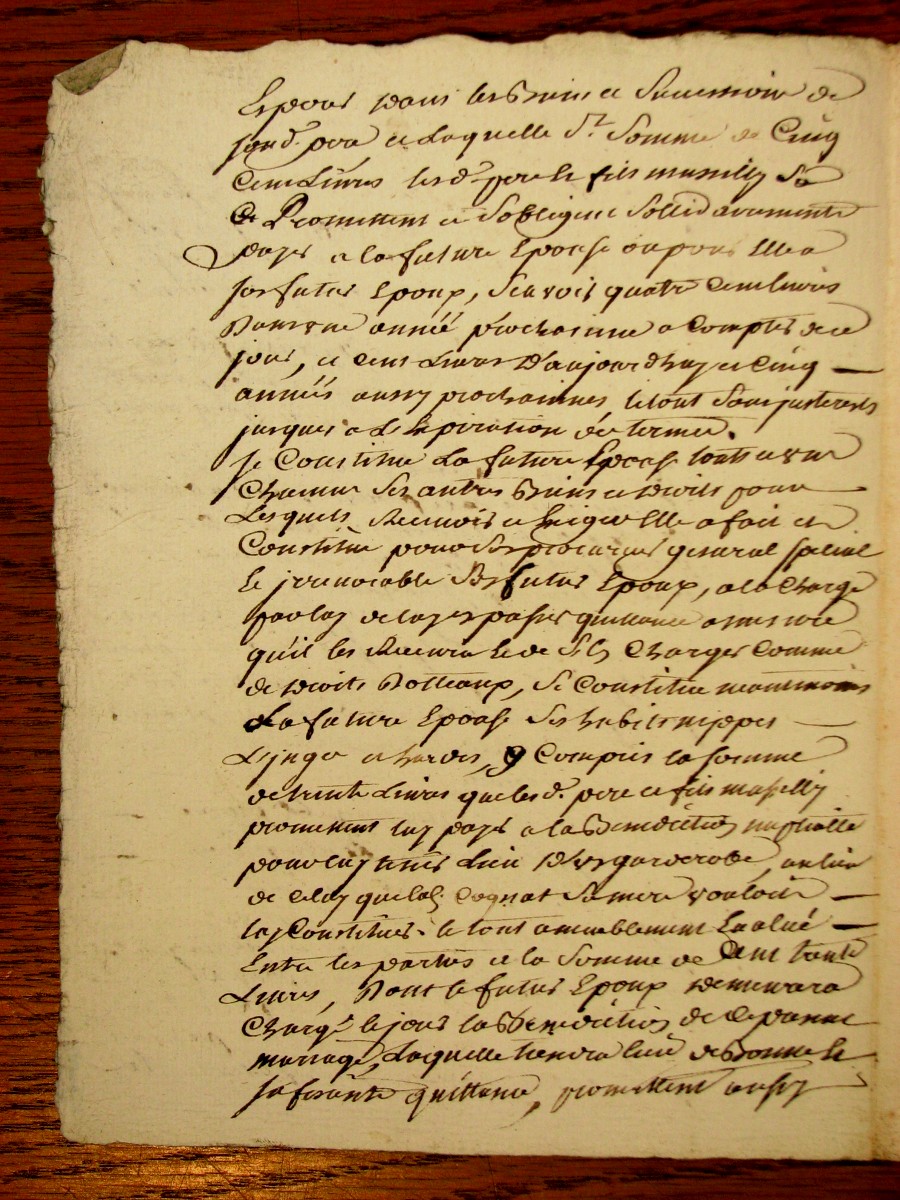 Epouse dans les Biens et Succession de
sond. pere et Laquelle dt. Somme de Cinq
Cent Livres lesd. pere et fils massilly
Promettent et Sobligent Sollidairement
payer a la future Epouse ou pour Elle a
son futur Epoux, Scavoir quatre Cent livres
Dans une année prochaine a Compter de ce
jour, et Cent Livres D'aujourdhuy en Cinq
années aussy prochaines le tout Sans jnterests
jusques a L'Expiration de terme.
Se Constitue La future Epouse touts et un
Chacuns Ses autres Biens et droits pour
Lesquels Recevoir et Exiger Elle a fait et
Constitué pour Son procureur general special
et jrrevocable Sondt futur Epoux, a la Charge
par luy de layer passer quittance a mesure
qu'il les Recevra et de S'En Charger Comme
de droits Dottaux, Se Constitue neantmoins
La future Epouse Ses habits nippes
Linge et hardes, y Compris la somme
de trente Livres que lesd. pere et fils massilly
promettent luy payer a la Benediction nuptialle
pour luy tenir Lieu D'un garderobe, au lieu
de Celuy que lad. Cognat Sa mere vouloit
luy Constituer. le tout amiablement Evalué
Entre les parties a la Somme de Cent trente
Livres, Dont le futur Epoux demeurera
Chargé le jour la Benediction de Ce present
mariage, Laquelle tiendra lieu de Bonne et
suffisante quittance, promettent aussy